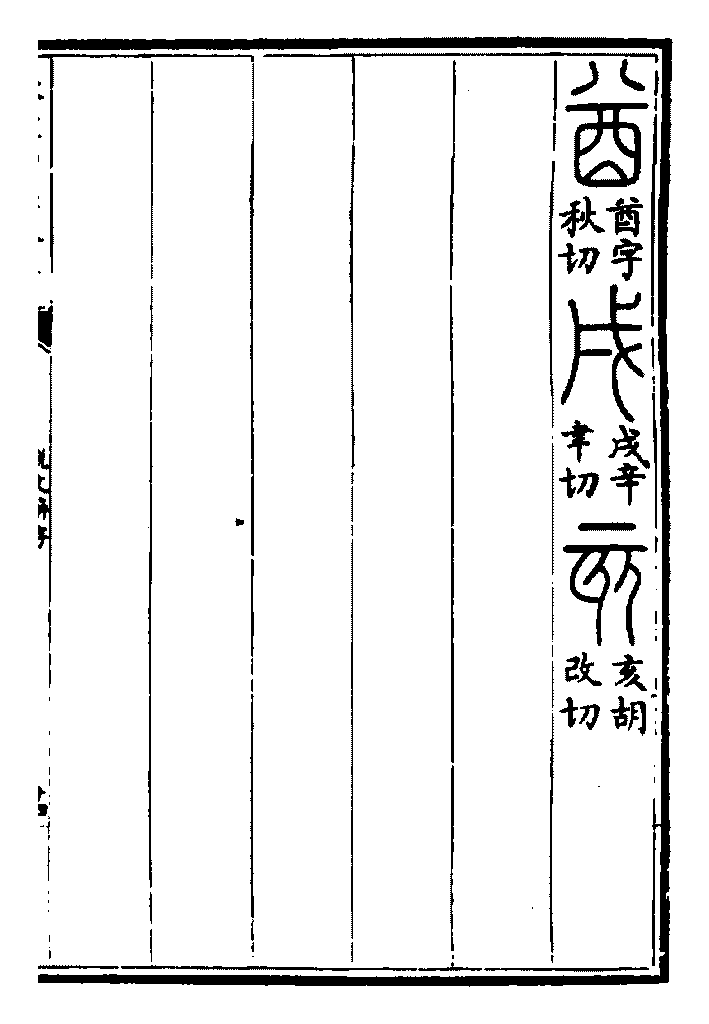 酋
酋字
秋切
戌
戌辛
聿切
亥
亥胡
改切